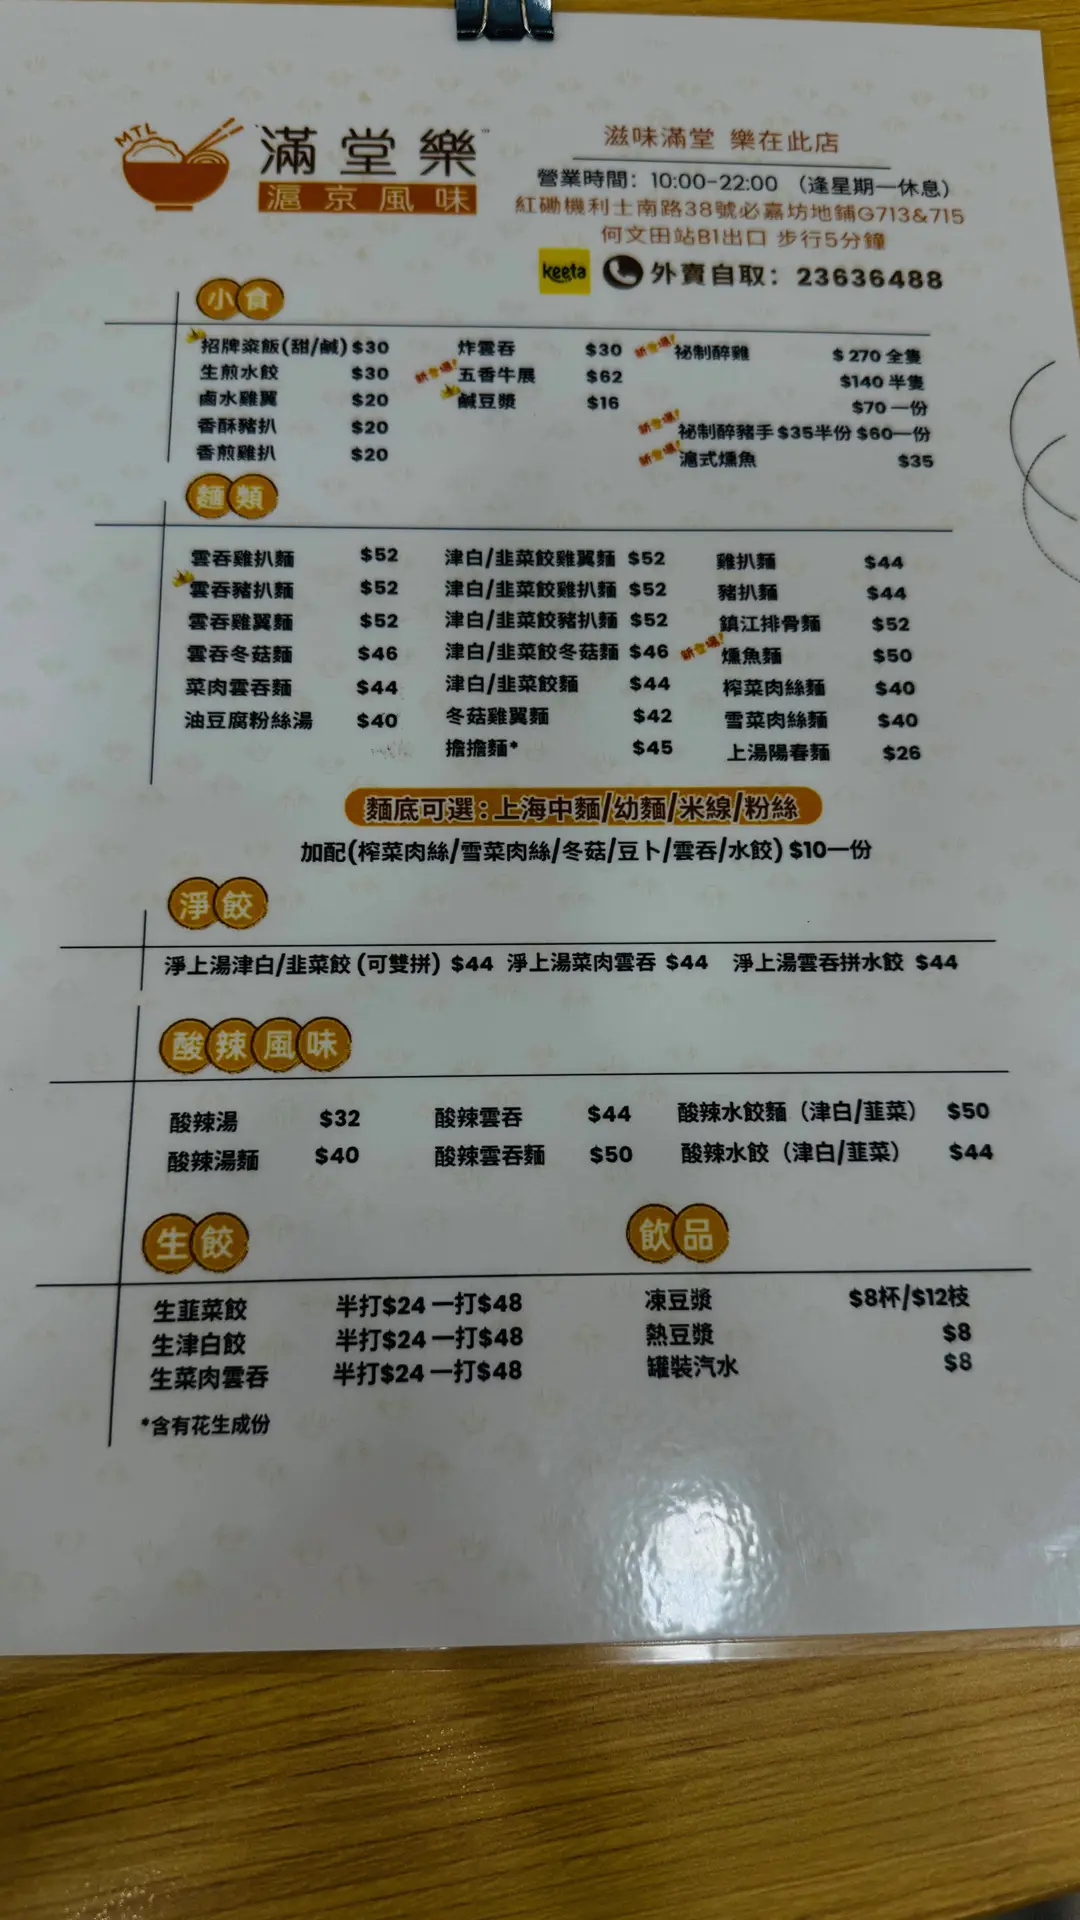 MTL
滿堂樂
滬京風味
滋味滿堂 樂在此店
營業時間：10:00-22:00 （逢星期一休息）
紅磡機利士南路38號必嘉坊地鋪G713&715
何文田站B1出口 步行5分鐘
keeta 外賣自取：23636488
小食
招牌粢飯(甜/鹹) $30
生煎水餃 $30
鹵水雞翼 $20
香酥豬扒 $20
香煎雞扒 $20
炸雲吞 $30
新登場! 五香牛展 $62
鹹豆漿 $16
新登場! 祕制醉雞 $270 全隻
$140 半隻
$70 一份
新登場! 祕制醉豬手 $35半份 $60一份
新登場! 滬式燻魚 $35
麵類
雲吞雞扒麵 $52
雲吞豬扒麵 $52
雲吞雞翼麵 $52
雲吞冬菇麵 $46
菜肉雲吞麵 $44
油豆腐粉絲湯 $40
津白/韭菜餃雞翼麵 $52
津白/韭菜餃雞扒麵 $52
津白/韭菜餃豬扒麵 $52
津白/韭菜餃冬菇麵 $46
津白/韭菜餃麵 $44
冬菇雞翼麵 $42
擔擔麵* $45
雞扒麵 $44
豬扒麵 $44
鎮江排骨麵 $52
新登場! 燻魚麵 $50
榨菜肉絲麵 $40
雪菜肉絲麵 $40
上湯陽春麵 $26
麵底可選:上海中麵/幼麵/米線/粉絲
加配(榨菜肉絲/雪菜肉絲/冬菇/豆卜/雲吞/水餃) $10一份
淨餃
淨上湯津白/韭菜餃 (可雙拼) $44 淨上湯菜肉雲吞 $44 淨上湯雲吞拼水餃 $44
酸辣風味
酸辣湯 $32 酸辣雲吞 $44 酸辣水餃麵（津白/韮菜） $50
酸辣湯麵 $40 酸辣雲吞麵 $50 酸辣水餃（津白/韮菜） $44
生餃
生韮菜餃 半打$24 一打$48
生津白餃 半打$24 一打$48
生菜肉雲吞 半打$24 一打$48
*含有花生成份
飲品
凍豆漿 $8杯/$12枝
熱豆漿 $8
罐裝汽水 $8